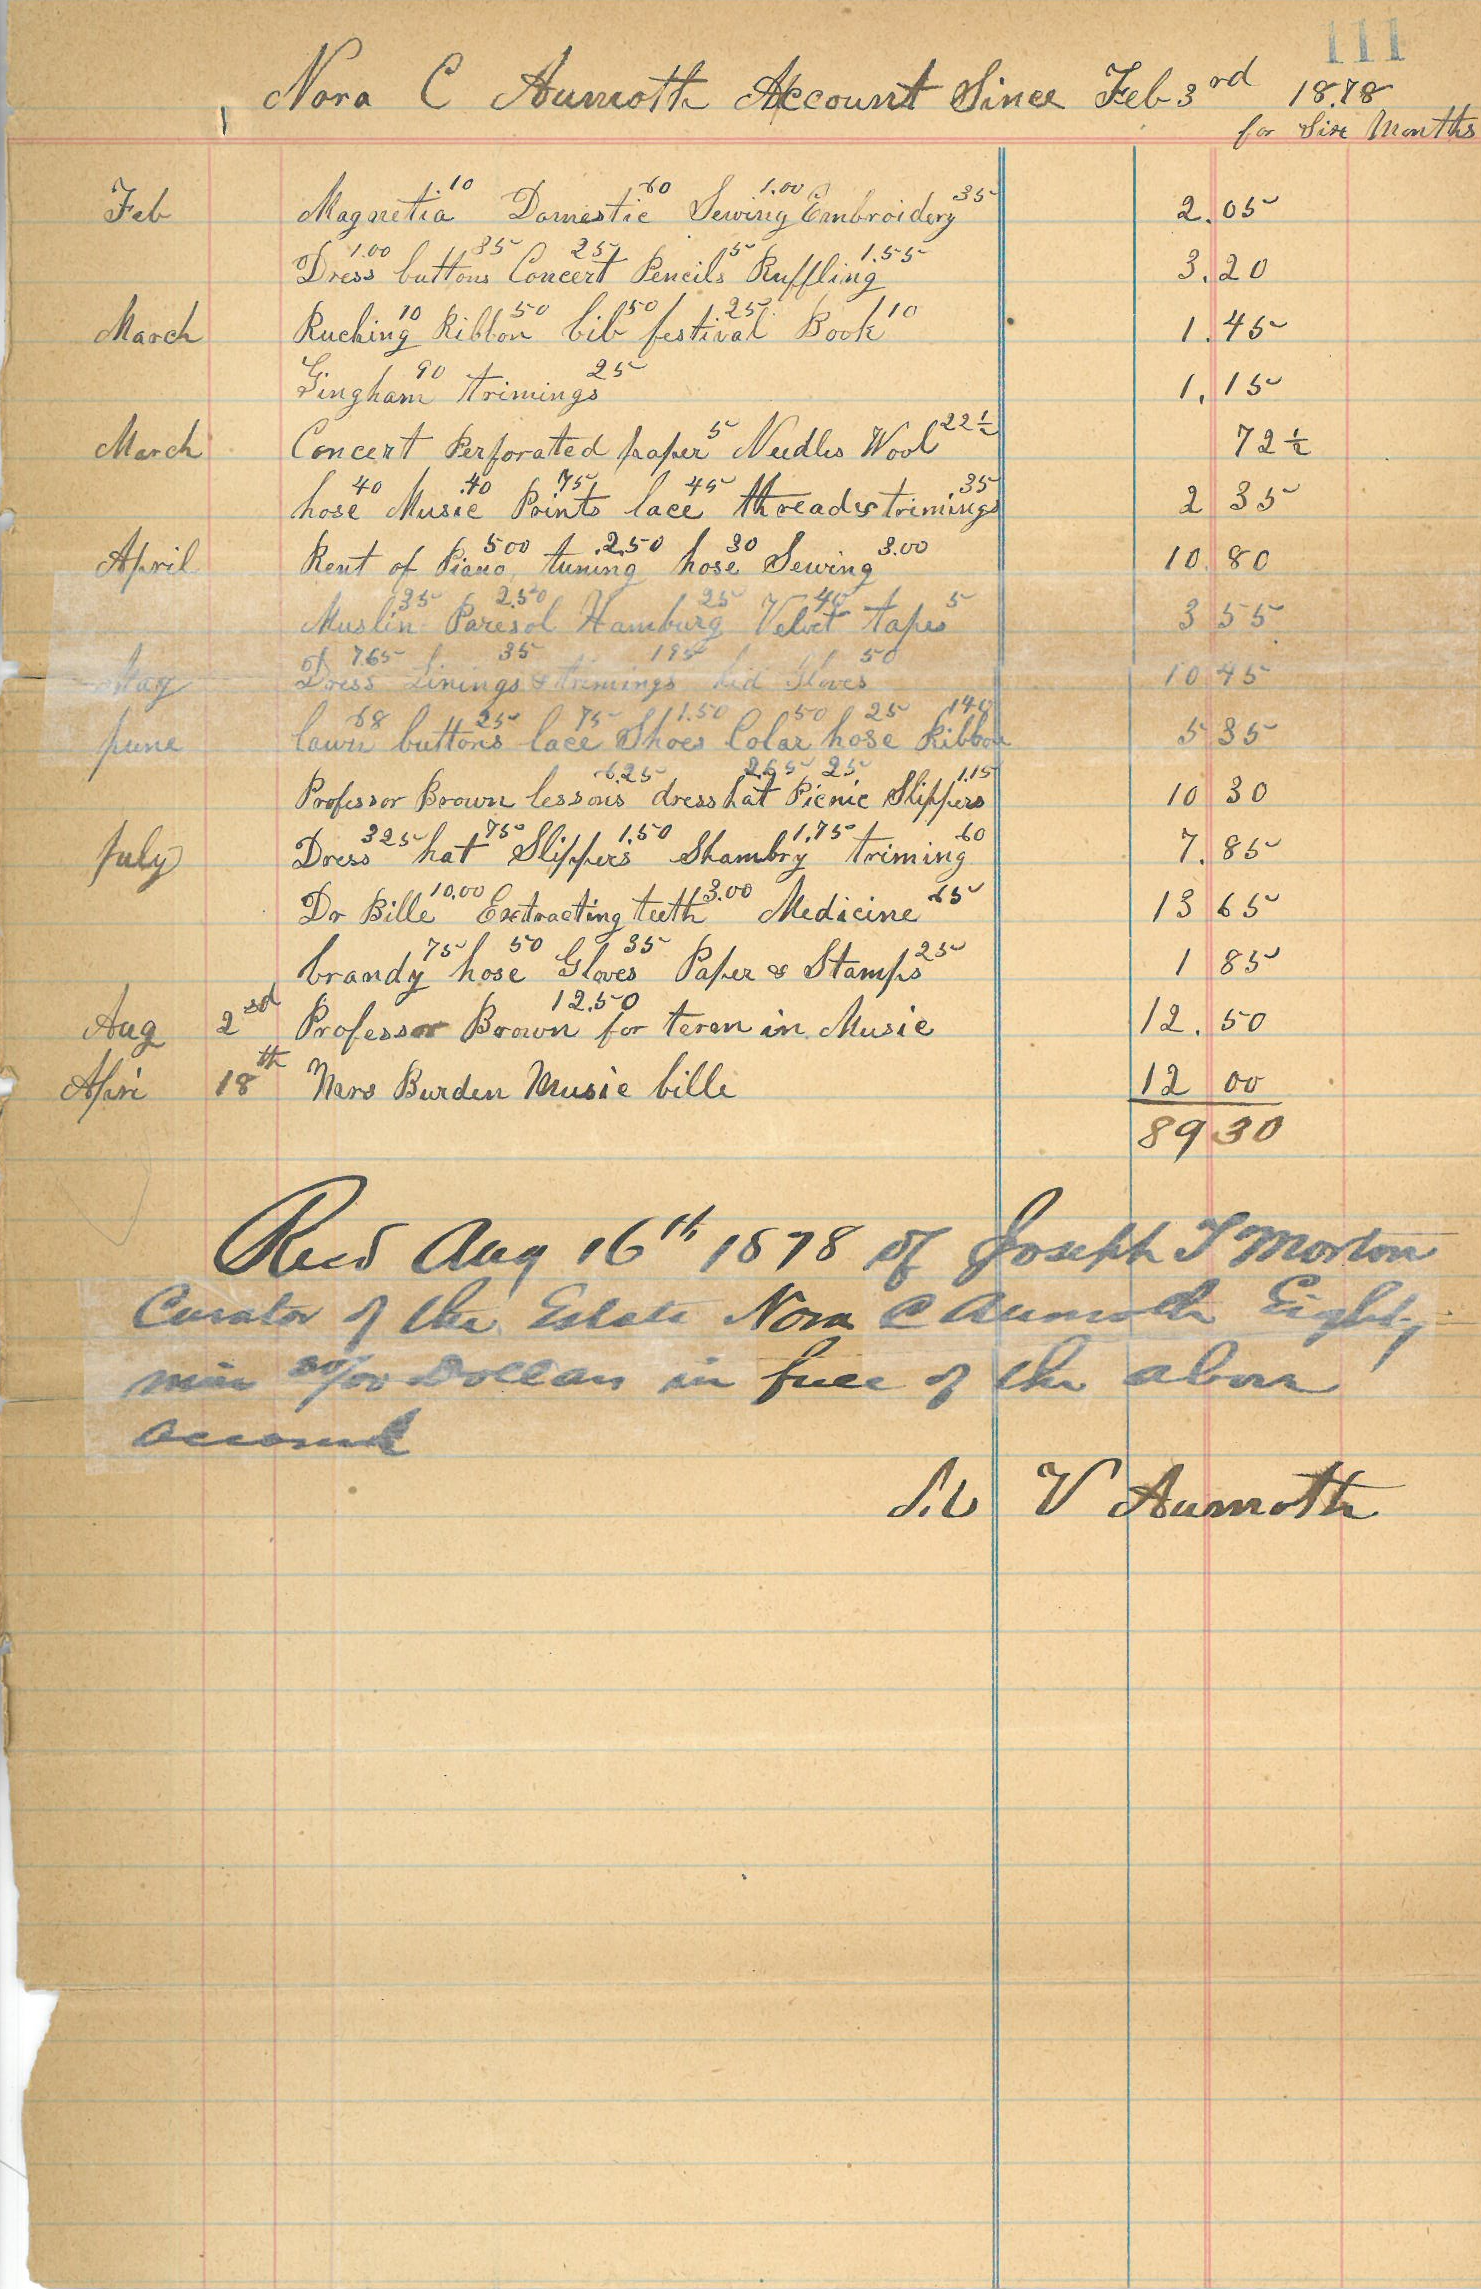 111
Nora C Aumoth Account Since Feb 3rd 18.78
for Six Months
Feb Magnetia .10 Domestic 60 Sewing 1.00 Embroidery 35 2.05
Dress 1.00 buttons 35 Concert 25 Pencils 5 Ruffling 1.55 3.20
March Ruching 10 Ribbon 50 bib 50 festival 25 Book 10 1.45
Gingham 90 trimings 25 1.15
March Concert Perforated paper 5 Needles Wool 22½ 72½
hose 40 Music .40 Prints 75 lace 45 thread & trimings 35 2 35
April Rent of Piano 500 tuning .2.50 hose 30 Sewing 3.00 10.80
Muslin 35 Paresol 2.50 Hamburg 25 Velvet 40 tapes 5 3 55
May Dress 7.65 Linings 35 & trimings 195 kid Gloves 50 10 45
June lawn 68 buttons 25 lace 75 Shoes 1.50 Colar 50 hose 25 Ribbon 140 5 35
Professor Brown lessons 6.25 dress hat 2.65 Picnic 25 Slippers 1.15 10 30
July Dress 325 hat 75 Slippers 1.50 Shambry 1.75 triming 60 7.85
Dr Bille 10.00 Extracting teeth 3.00 Medicine 65 13 65
brandy 75 hose 50 Gloves 35 Paper & Stamps 25 1 85
Aug 2nd Professor Brown 12.50 for term in Music 12.50
Apri 18th Mrs Burden Music bille 12 00
89 30
Recd Aug 16th 1878 of Joseph T Morton
Curator of the Estate Nora C Aumoth Eighty
nine 30/00 Dollars in full of the above
account
V Aumoth